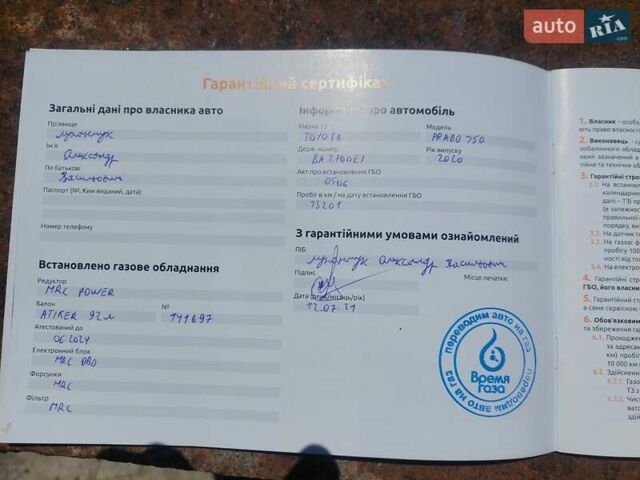 auto RIA .com
Гарантійний сертифікат
Загальні дані про власника авто
Прізвище
Ім'я
Олександр
По батькові
Васильович
Паспорт (№, Ким виданий, дата)
Номер телефону
Встановлено газове обладнання
Редуктор
MRC POWER
Балон
№
ATIKER 92л
141697
Атестований до
06.2024
Електронний блок
MRC OBD
Форсунки
MRC
Фільтр
MRC
Інформація про автомобіль
Марка ТЗ
Модель
TOYOTA
PRADO 150
Держ. номер
Рік випуску
2020
Акт про встановлення ГБО
0506
Пробіг в км / на дату встановлення ГБО
73201
З гарантійними умовами ознайомлений
ПІБ
Олександр Васильович
Підпис
Місце печатки:
Дата (день/місяць/рік)
12.07.21
переводим авто на газ
Время Газа
переводим авто на газ
1. Власник – особа
2. Виконавець
3. Гарантійні стро
3.1. На встановлен
календарних
3.2. На датчик
3.3. На газові ф
пробігу 1000
ності від того
3.4. На електро
4. Гарантійні стро
ГБО, його власни
5. Гарантійний
а саме сервісною
6. Обов'язковим
та збереження гара
6.1. Проходжен
за адресами
км) пробігу
10 000 км п
6.2. Здійснення
6.2.1.
ТЗ з
6.2.2. Чист